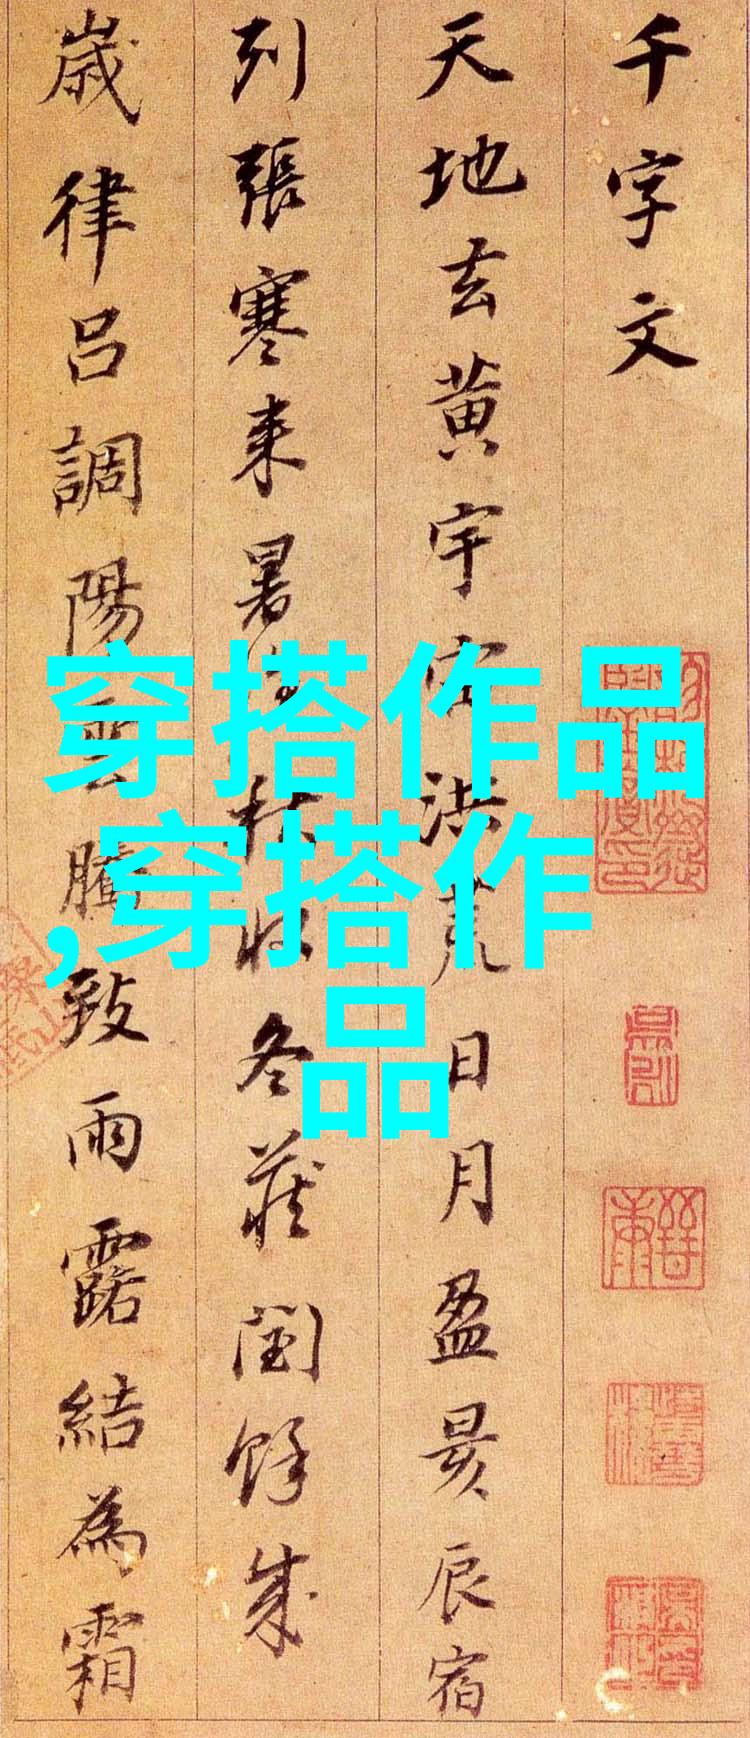 千字文
天地玄黄宇宙洪荒日月盈昃辰宿
列張寒来暑往秋收冬蔵閏餘成
歳律呂調陽雲騰致雨露結為霜
穿搭作品
,穿搭作
品